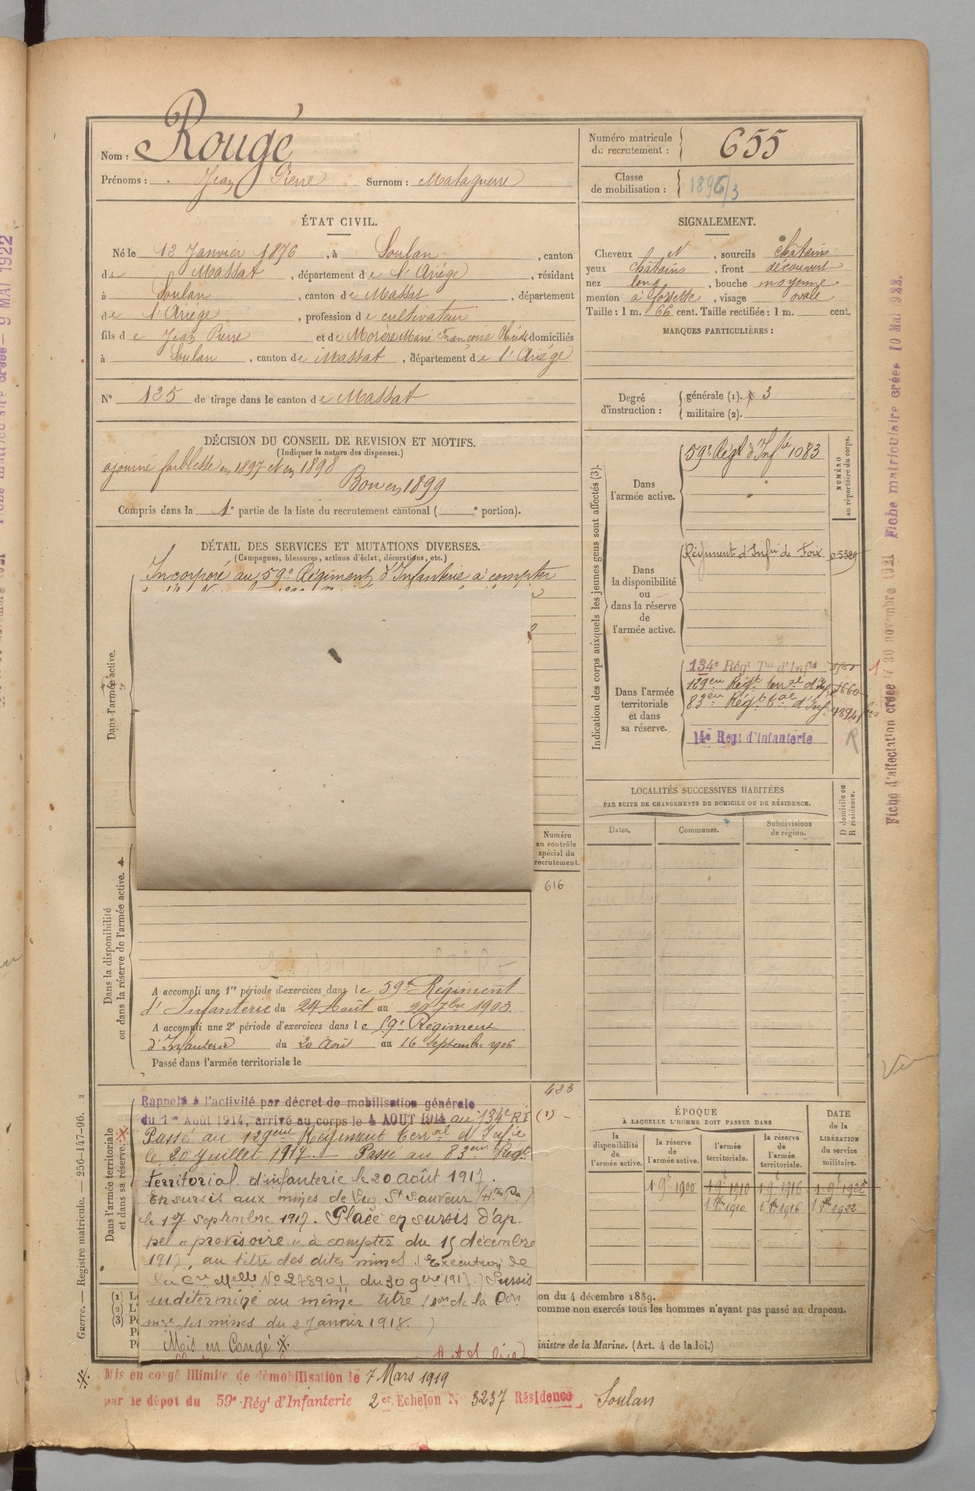 Nom : Rougé
Prénoms : Jean Pierre Surnom : Mataguerre
Numéro matricule du recrutement : 655
Classe de mobilisation : 1896/3
ÉTAT CIVIL.
Né le 12 Janvier 1876, à Soulan, canton
de Massat, département de l'Ariège, résidant
à Soulan, canton de Massat, département
de l'Ariège, profession de cultivateur
fils de Jean Pierre et de Marie Françoise domiciliés
à Soulan, canton de Massat, département de l'Ariège
N° 125 de tirage dans le canton de Massat
SIGNALEMENT.
Cheveux N, sourcils châtains
yeux châtains, front découvert
nez long, bouche moyenne
menton à fossette, visage ovale
Taille : 1 m. 66 cent. Taille rectifiée : 1 m. cent.
MARQUES PARTICULIÈRES :
Degré d'instruction : générale (1). 3
militaire (2).
DÉCISION DU CONSEIL DE REVISION ET MOTIFS.
(Indiquer la nature des dispenses.)
ajourné faiblesse en 1897 et en 1898
Bon en 1899
Compris dans la 1e partie de la liste du recrutement cantonal ( e portion).
DÉTAIL DES SERVICES ET MUTATIONS DIVERSES.
(Campagnes, blessures, actions d'éclat, décorations, etc.)
Incorporé au 59e Régiment d'Infanterie à compter
Dans l'armée active.
Dans la disponibilité ou dans la réserve de l'armée active.
Numéro au contrôle spécial du recrutement.
616
A accompli une 1re période d'exercices dans le 59e Régiment
d'Infanterie du 24 Août au 20 7bre 1903
A accompli une 2e période d'exercices dans le 59e Régiment
d'Infanterie du 20 Août au 16 Septembre 1906
Passé dans l'armée territoriale le
Dans l'armée territoriale et dans sa réserve.
423
Rappelé à l'activité par décret de mobilisation générale
du 1er Août 1914, arrivé au corps le 4 AOUT 1914 au 134e RT (1)
Passé au 129eme Régiment Terral d'Infie
le 20 juillet 1917. Passé au 83eme Régt
territorial d'infanterie le 20 août 1917.
En sursis aux mines de St Sauveur
le 1er septembre 1917. Placé en sursis d'ap-
pel "provisoire" à compter du 15 décembre
1917, au titre des dites mines (Exécution de
la Cre Melle No 27890 du 30 9bre 1917) Sursis
indéterminé au même titre de la
mre des mines du 2 janvier 1918.
Mis en Congé ※
※ Mis en congé illimité de démobilisation le 7 Mars 1919
par le dépot du 59e Régt d'Infanterie 2er Echelon N° 3237 Résidence Soulan
Indication des corps auxquels les jeunes gens sont affectés (3).
NUMÉRO au répertoire du corps.
Dans l'armée active.
59e Régt d'Infie 1083
Dans la disponibilité ou dans la réserve de l'armée active.
Régiment d'Infie de Foix
Dans l'armée territoriale et dans sa réserve.
134e Régt Tal d'Infie
129eme Régt terral d'Inf
83eme Régt tal d'Inf
14e Regt d'Infanterie
R
LOCALITÉS SUCCESSIVES HABITÉES
PAR SUITE DE CHANGEMENTS DE DOMICILE OU DE RÉSIDENCE.
Dates. Communes. Subdivisions de région. D domicile ou R résidence.
ÉPOQUE
À LAQUELLE L'HOMME DOIT PASSER DANS
DATE de la LIBÉRATION du service militaire.
la disponibilité de l'armée active. la réserve de l'armée active. l'armée territoriale. la réserve de l'armée territoriale.
1 9e 1900 1 9e 1910 1 9e 1916
1 8bre 1910 1 8bre 1916 1 8bre 1922
on du 4 décembre 1889.
comme non exercés tous les hommes n'ayant pas passé au drapeau.
inistre de la Marine. (Art. 4 de la loi.)
(1)
(2)
(3)
Guerre. — Registre matricule. — 256-147-96.
Fiche d'affectation créée 30 novembre 1921 Fiche matriculaire créée 10 Mai 1922.
9 MAI 1922